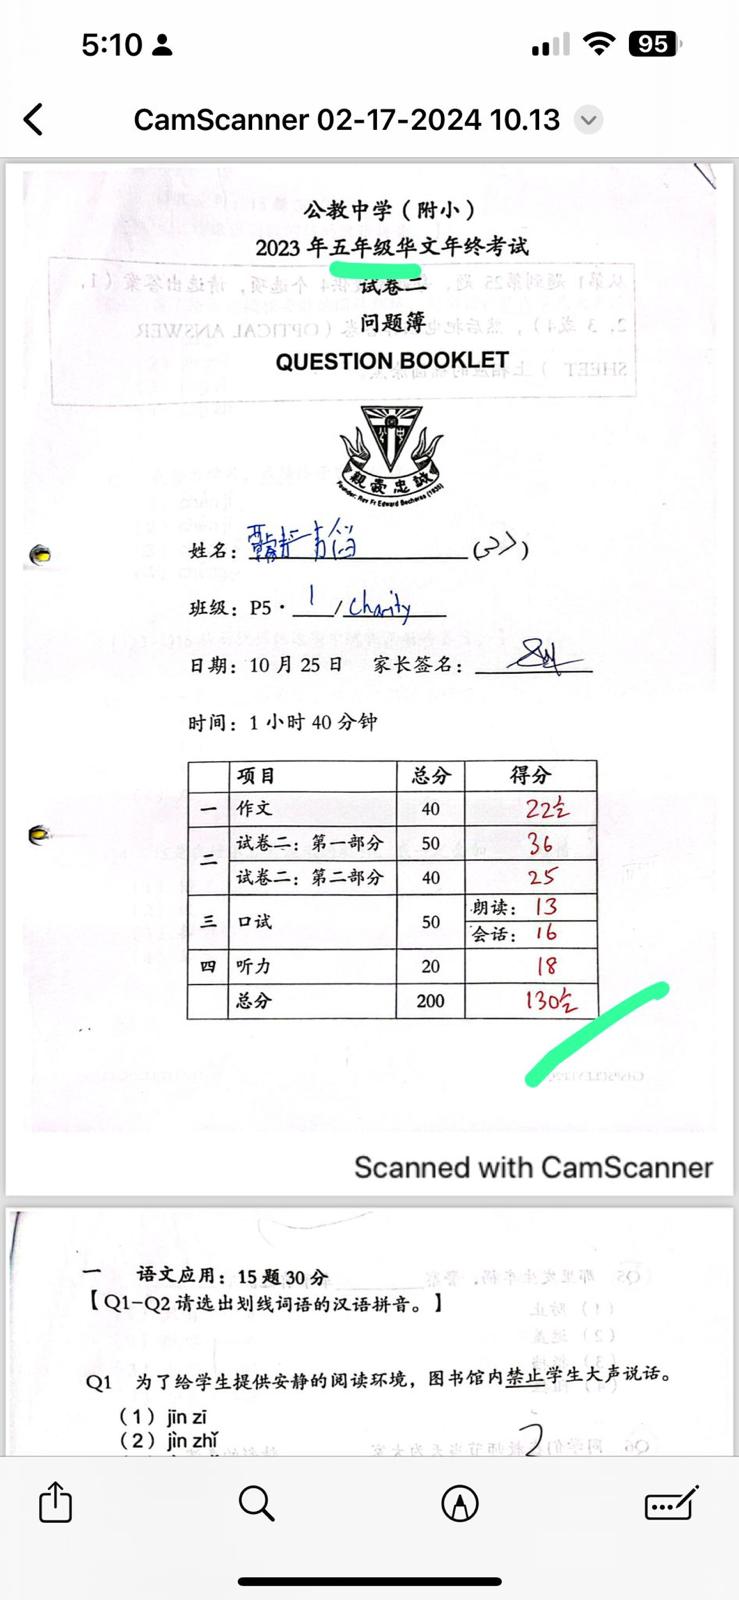 5:10
95
CamScanner 02-17-2024 10.13
公教中学（附小）
2023 年五年级华文年终考试
试卷二
问题簿
QUESTION BOOKLET
親愛忠誠
Founder: Rev Fr Edward Becheras (1935)
姓名：
班级：P5· 1 / Charity
日期：10 月 25 日 家长签名：
时间：1 小时 40 分钟
项目 总分 得分
一 作文 40 22½
二 试卷二：第一部分 50 36
试卷二：第二部分 40 25
三 口试 50 朗读：13
会话：16
四 听力 20 18
总分 200 130½
Scanned with CamScanner
一 语文应用：15 题 30 分
【Q1-Q2 请选出划线词语的汉语拼音。】
Q1 为了给学生提供安静的阅读环境，图书馆内禁止学生大声说话。
（1）jīn zī
（2）jìn zhǐ
2